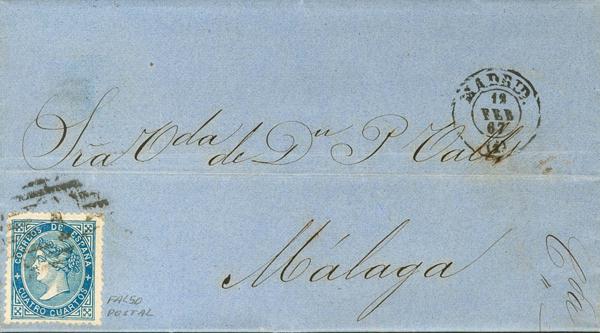 MADRID.
12
FEB
67
Sra Vda de Dn P Valls
Málaga
CORREOS DE ESPAÑA
CUATRO CUARTOS
FALSO
POSTAL